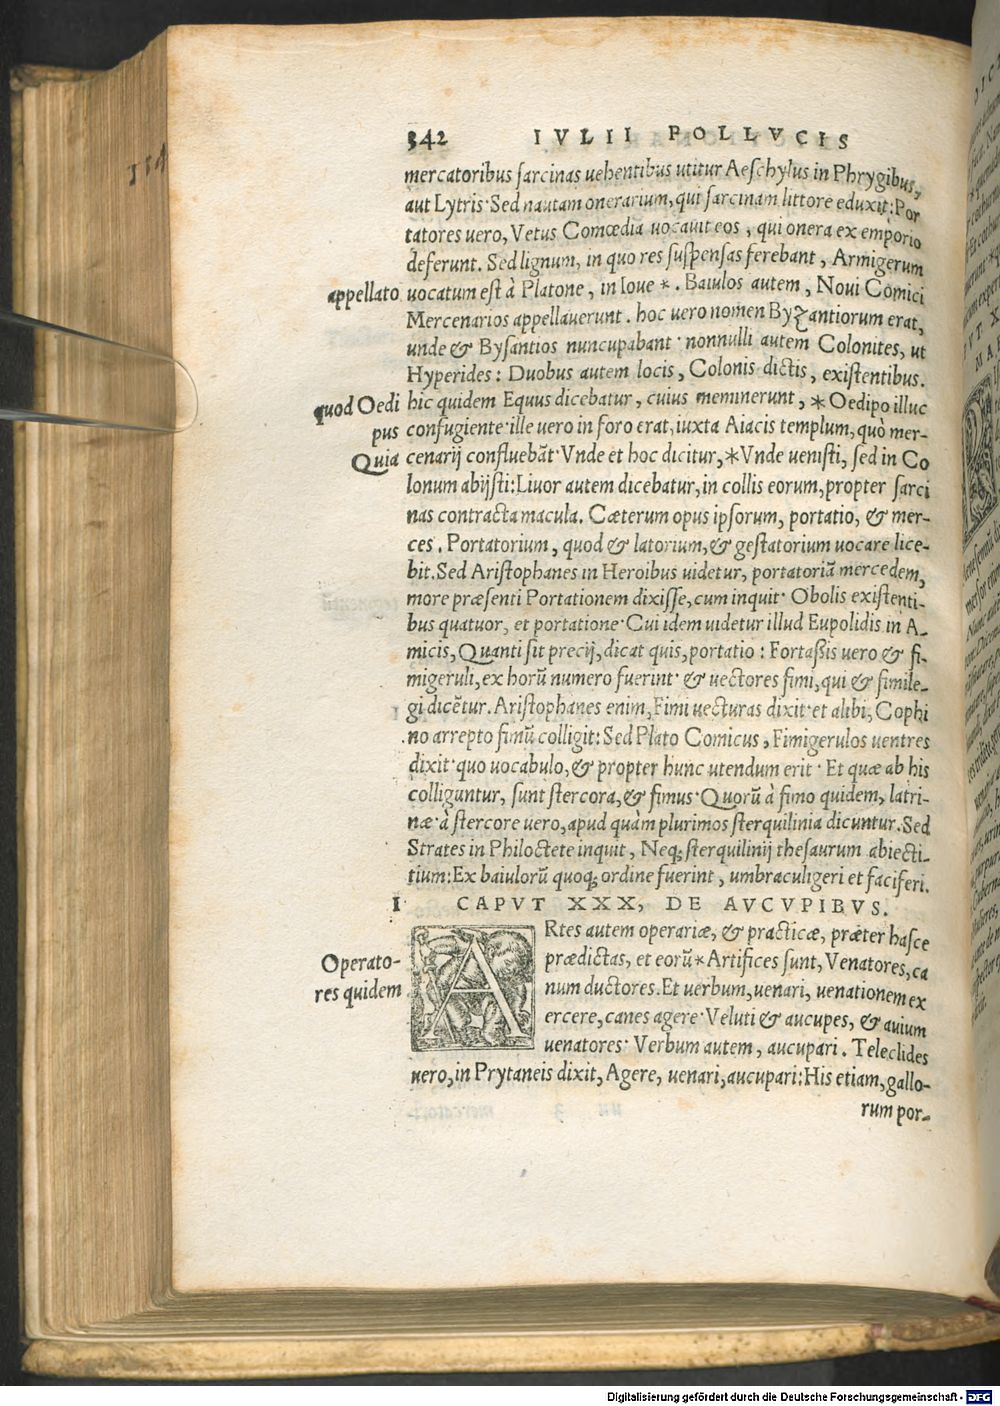 342 IVLII POLLVCIS
mercatoribus sarcinas uehentibus utitur Aeschylus in Phrygibus,
aut Lytris· Sed nautam onerarium, qui sarcinam littore eduxit: Por
tatores uero, Vetus Comœdia uocauit eos, qui onera ex emporio
deferunt. Sed lignum, in quo res suspensas ferebant, Armigerum
appellato uocatum est à Platone, in Ioue *. Baiulos autem, Noui Comici
Mercenarios appellauerunt. hoc uero nomen Byzantiorum erat,
unde & Bysantios nuncupabant· nonnulli autem Colonites, ut
Hyperides: Duobus autem locis, Colonis dictis, existentibus.
quod Oedi hic quidem Equus dicebatur, cuius meminerunt, * Oedipo illuc
pus confugiente·ille uero in foro erat, iuxta Aiacis templum, quò mer-
Quia cenarij confluebāt· Vnde et hoc dicitur, *Vnde uenisti, sed in Co
lonum abijsti: Liuor autem dicebatur, in collis eorum, propter sarci
nas contracta macula. Cæterum opus ipsorum, portatio, & mer-
ces. Portatorium, quod & latorium, & gestatorium uocare lice-
bit. Sed Aristophanes in Heroibus uidetur, portatoriā mercedem,
more præsenti Portationem dixisse, cum inquit· Obolis existenti-
bus quatuor, et portatione· Cui idem uidetur illud Eupolidis in A-
micis, Quanti sit precij, dicat quis, portatio: Fortassis uero & fi-
migeruli, ex horū numero fuerint· & uectores fimi, qui & simile-
gi dicētur. Aristophanes enim, Fimi uecturas dixit· et alibi, Cophi
no arrepto fimū colligit: Sed Plato Comicus, Fimigerulos uentres
dixit· quo uocabulo, & propter hunc utendum erit· Et quæ ab his
colliguntur, sunt stercora, & fimus· Quorū à fimo quidem, latri-
næ· à stercore uero, apud quàm plurimos sterquilinia dicuntur. Sed
Strates in Philoctete inquit, Neq; sterquilinij thesaurum abiecti-
tium: Ex baiulorū quoq; ordine fuerint, umbraculigeri et faciferi.
I CAPVT XXX, DE AVCVPIBVS.
ARtes autem operariæ, & practicæ, præter hasce
Operato- prædictas, et eorū * Artifices sunt, Venatores, ca
res quidem num ductores. Et uerbum, uenari, uenationem ex
ercere, canes agere· Veluti & aucupes, & auium
uenatores· Verbum autem, aucupari. Teleclides
uero, in Prytaneis dixit, Agere, uenari, aucupari: His etiam, gallo-
rum por-
Digitalisierung gefördert durch die Deutsche Forschungsgemeinschaft - DFG